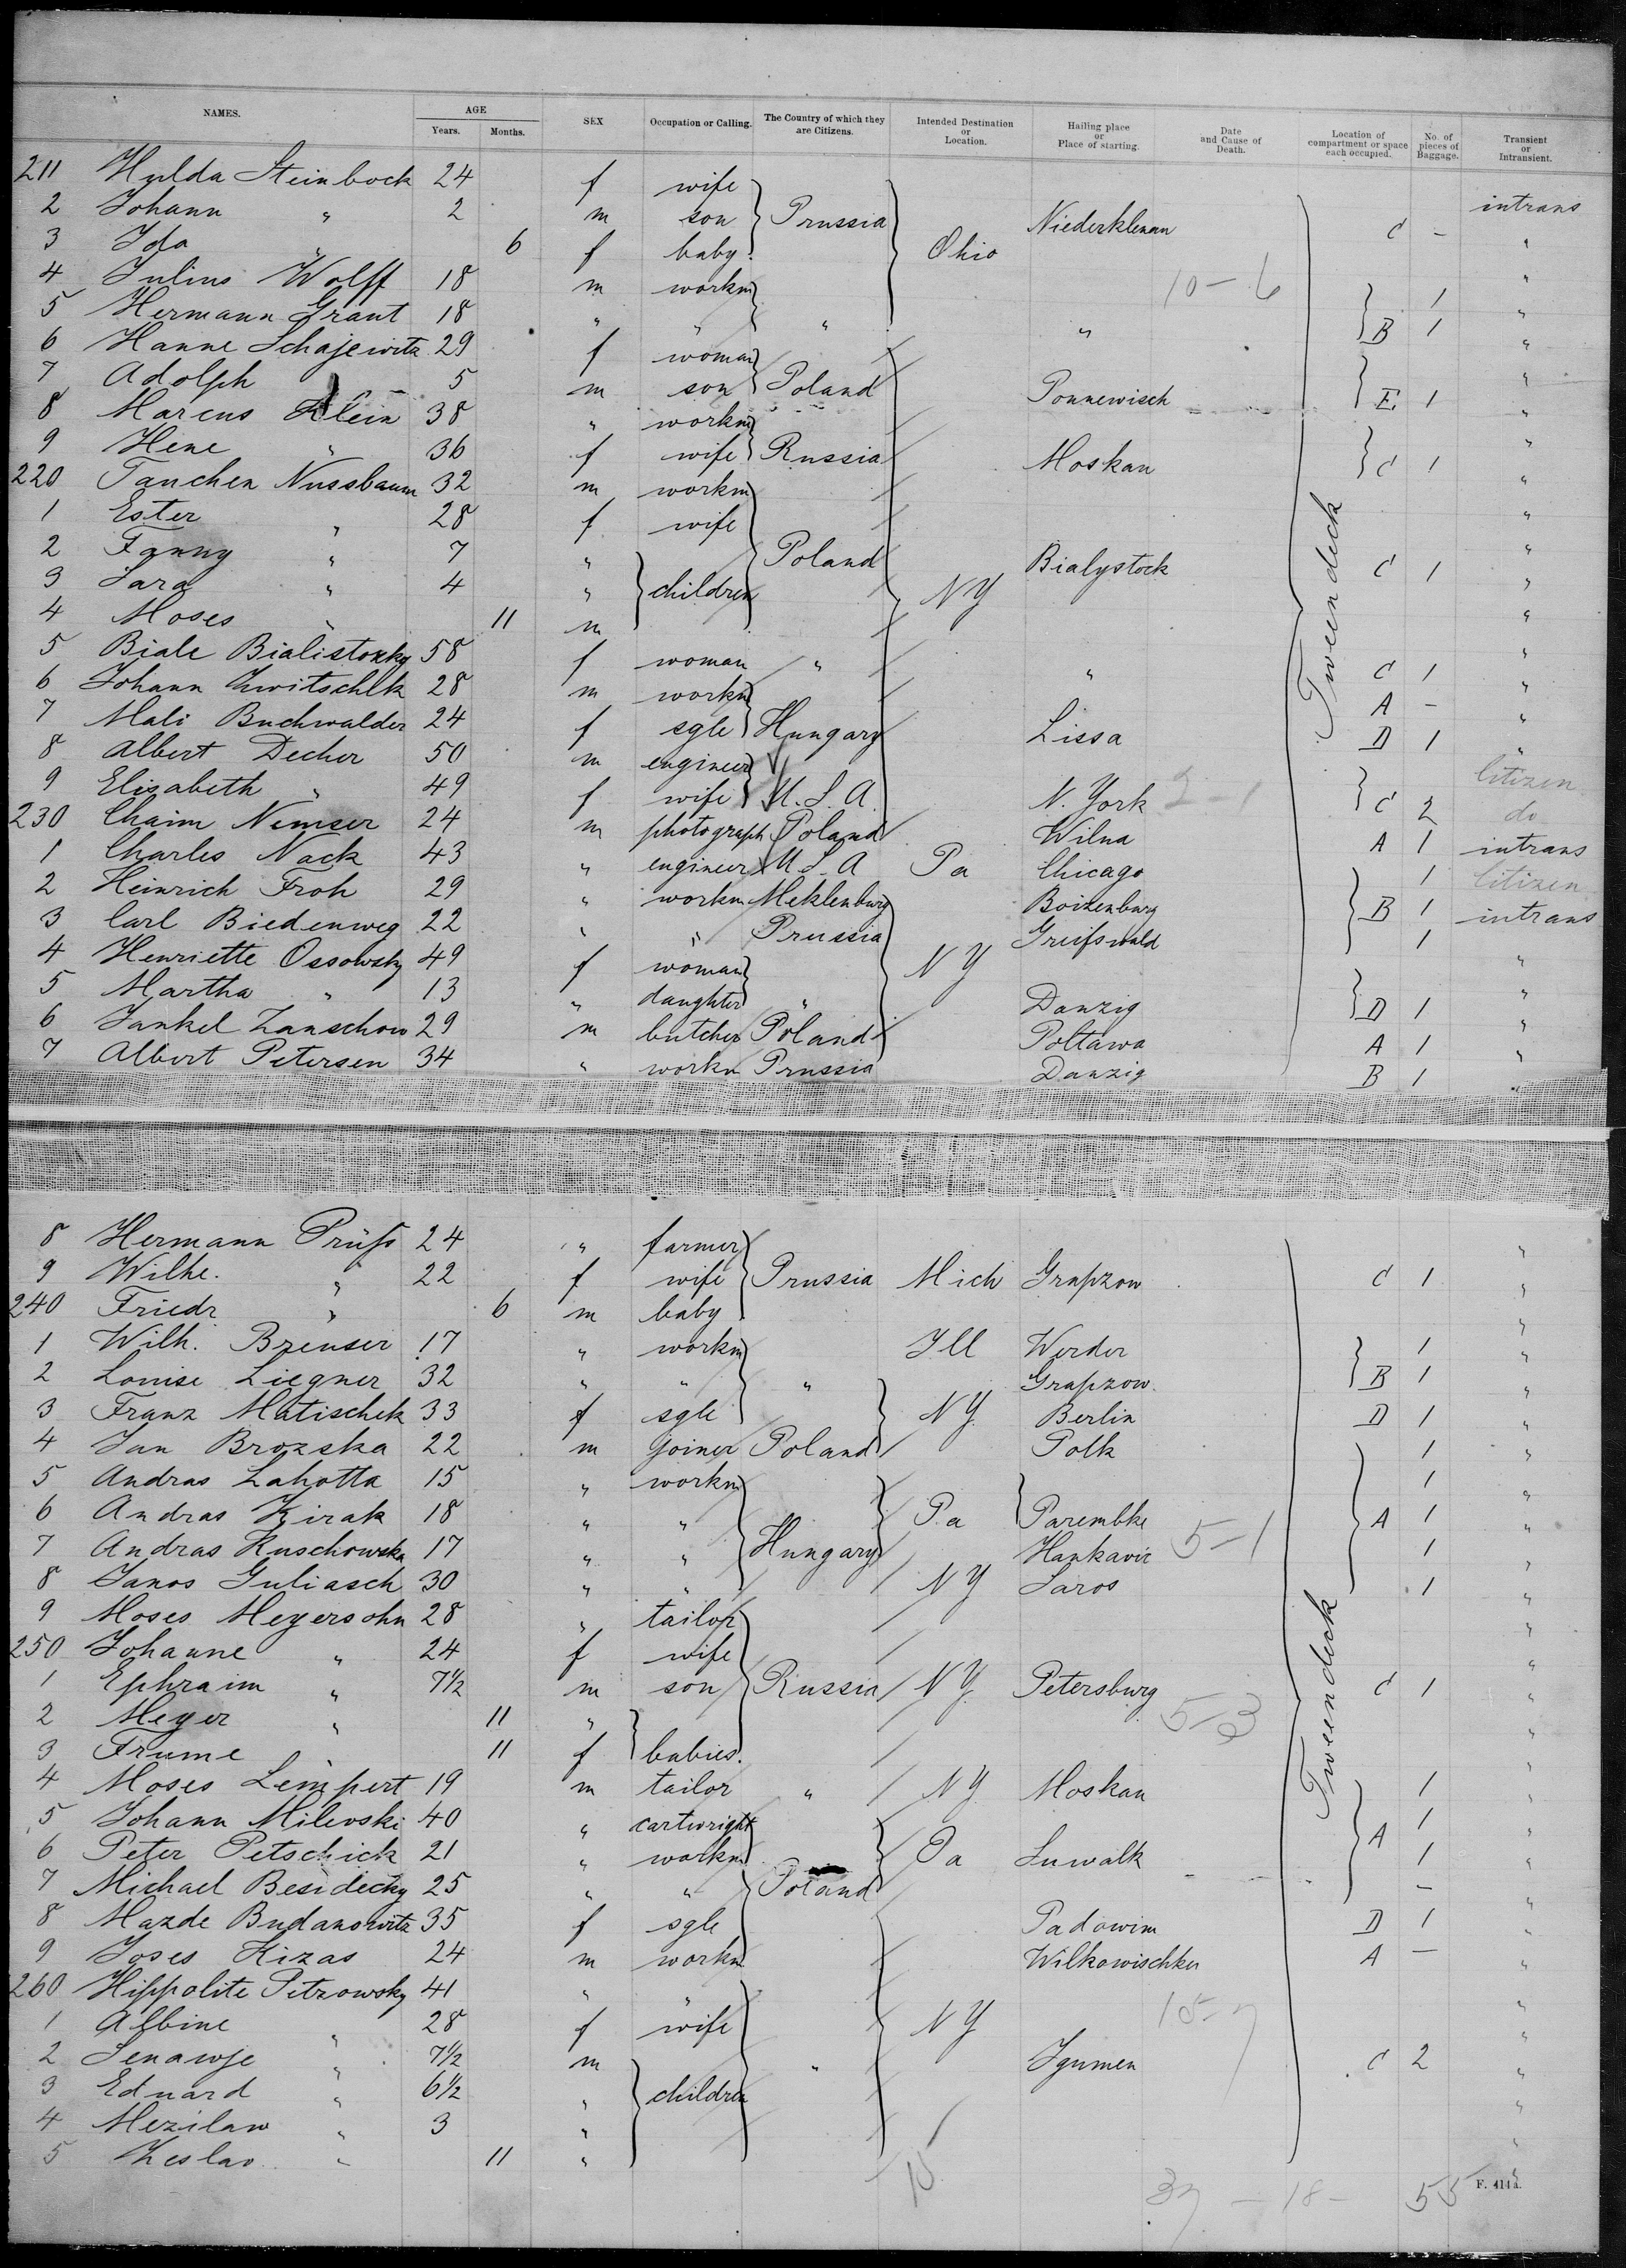 NAMES. AGE SEX Occupation or Calling. The Country of which they are Citizens. Intended Destination or Location. Hailing place or Place of starting. Date and Cause of Death. Location of compartment or space each occupied. No. of pieces of Baggage. Transient or Intransient.
Years. Months.
211 Hulda Steinbock 24 f wife intrans
2 Johann " 2 m son Prussia Niederkleman C - "
3 Ida " 6 f baby Ohio "
4 Julius Wolff 18 m workm 10-6 1 "
5 Hermann Grant 18 " " " " B 1 "
6 Hanne Schajewitz 29 f woman "
7 Adolph " 5 m son Poland Ponnewisch E 1 "
8 Marcus Klein 38 " workm "
9 Hene " 36 f wife Russia Moskau C 1 "
220 Tanchen Nussbaum 32 m workm "
1 Ester " 28 f wife "
2 Fanny " 7 " Poland Bialystock C 1 "
3 Sara " 4 " children NY "
4 Moses " 11 m "
5 Biale Bialistozky 58 f woman " " C 1 "
6 Johann Zwitschlk 28 m workm A - "
7 Mali Buchwalder 24 f sgle Hungary Lissa D 1 "
8 Albert Decher 50 m engineer Citizen
9 Elisabeth " 49 f wife U.S.A. N. York 2-1 C 2 do
230 Chaim Nemser 24 m photograph Poland Wilna A 1 intrans
1 Charles Nack 43 " engineer U.S.A Pa Chicago 1 Citizen
2 Heinrich Froh 29 " workm Meklenburg Boizenburg B 1 intrans
3 Carl Biedenweg 22 " " Prussia Greifswald 1 "
4 Henriette Ossowsky 49 f woman NY "
5 Martha " 13 " daughter " Danzig D 1 "
6 Jankel Zanschow 29 m butcher Poland Poltawa A 1 "
7 Albert Petersen 34 " workm Prussia Danzig B 1 "
Tweendeck
8 Hermann Prüfs 24 " farmer "
9 Wilhe. " 22 f wife Prussia Mich Grapzow C 1 "
240 Friedr " 6 m baby "
1 Wilh. Brenser 17 " workm Ill Werder 1 "
2 Louise Liegner 32 " " " Grapzow B 1 "
3 Franz Matischek 33 f sgle NY Berlin D 1 "
4 Jan Brozska 22 m joiner Poland Polk 1 "
5 Andras Lahotta 15 " workm 1 "
6 Andras Kirak 18 " " Pa Parembke A 1 "
7 Andras Kuschowska 17 " " Hungary Hankavic 5-1 1 "
8 Janos Guliasch 30 " " NY Saros 1 "
9 Moses Meyersohn 28 " tailor "
250 Johanne " 24 f wife "
1 Ephraim " 7½ m son Russia NY Petersburg C 1 "
2 Meyer " 11 " 5-3 "
3 Frume " 11 f babies. "
4 Moses Lempert 19 m tailor " NY Moskau 1 "
5 Johann Milevski 40 " cartwright 1 "
6 Peter Petschick 21 " workm Pa Suwalk A 1 "
7 Michael Besidecky 25 " " Poland - "
8 Mazde Budanowitz 35 f sgle Padowim D 1 "
9 Joses Kizas 24 m workm Wilkowischken A - "
260 Hippolite Petzowsky 41 " " "
1 Albine " 28 f wife NY 10-7 "
2 Senawje " 7½ m " Igumen C 2 "
3 Eduard " 6½ " children "
4 Mezilaw " 3 " "
5 Zeslav " 11 " "
Tweendeck
15 37 - 18 - 55 F. 414a.